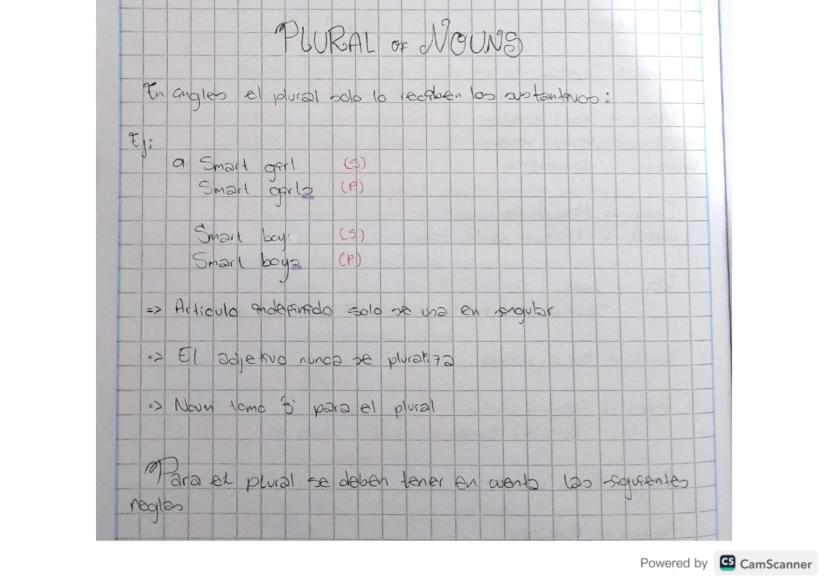 PLURAL OF NOUNS
En ingles el plural solo lo reciben los sustantivos:
Ej:
a Smart girl (S)
Smart girls (P)
Smart boy (S)
Smart boys (P)
=> Articulo indefinido solo se usa en singular
=> El adjetivo nunca se pluraliza
=> Noun toma 's' para el plural
Para el plural se deben tener en cuenta las siguientes
reglas
Powered by CS CamScanner